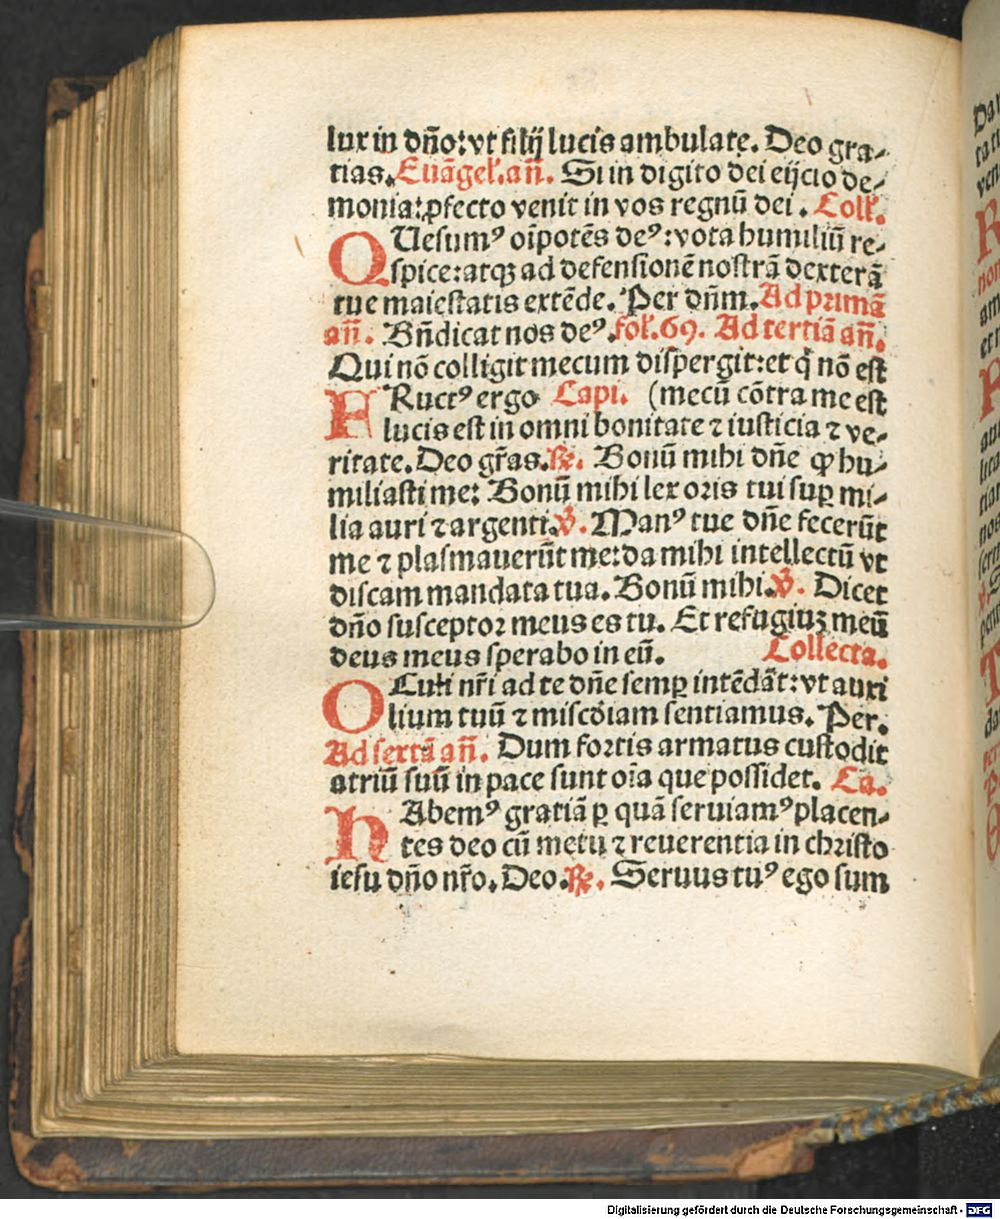 lux in dño: vt filij lucis ambulate. Deo gra-
tias. Euãgeł. añ. Si in digito dei eijcio de-
monia: ꝓfecto venit in vos regnũ dei. Colł.
QUesumꝰ oĩpotẽs deꝰ: vota humiliũ re-
spice: atqꝫ ad defensionẽ nostrã dexterã
tue maiestatis extẽde. Per dñm. Ad primã
añ. Bñdicat nos deꝰ. fol. 69. Ad tertiã añ.
Qui nõ colligit mecum dispergit: et q̃ nõ est
FRuctꝰ ergo Capi. (mecũ cõtra me est
lucis est in omni bonitate ⁊ iusticia ⁊ ve-
ritate. Deo gr̃as. ℟. Bonũ mihi dñe ꝙ hu-
miliasti me: Bonũ mihi lex oris tui suꝑ mi-
lia auri ⁊ argenti. ℣. Manꝰ tue dñe fecerũt
me ⁊ plasmauerũt me: da mihi intellectũ vt
discam mandata tua. Bonũ mihi. ℣. Dicet
dño susceptor meus es tu. Et refugiuꝫ meũ
deus meus sperabo in eũ. Collecta.
OCuli nr̃i ad te dñe semꝑ intẽdãt: vt auxi
lium tuũ ⁊ miscđiam sentiamus. Per.
Ad sextã añ. Dum fortis armatus custodit
atriũ suũ in pace sunt oĩa que possidet. Ca.
HAbemꝰ gratiã ꝑ quã seruiamꝰ placen-
tes deo cũ metu ⁊ reuerentia in christo
iesu dño nr̃o. Deo. ℟. Seruus tuꝰ ego sum
Digitalisierung gefördert durch die Deutsche Forschungsgemeinschaft - DFG